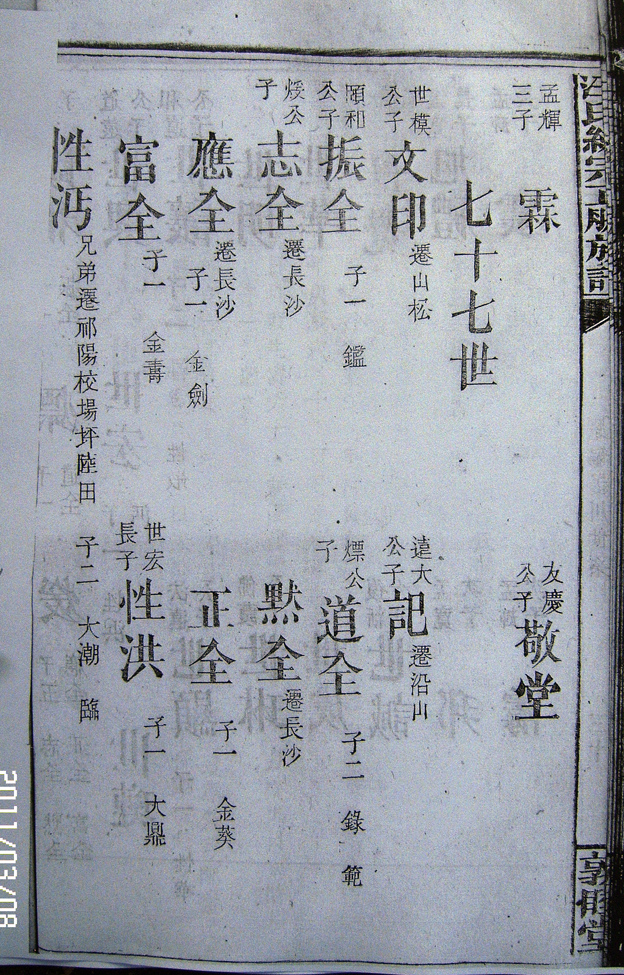 孟輝三子 霖
友慶公子 敬堂
七十七世
世模公子 文印 遷山松
遠大公子 記 遷沿山
頤和公子 振全 子一 鑑
煙公子 道全 子二 錄 範
煖公子 志全 遷長沙
默全 遷長沙
應全 遷長沙 子一 金劍
正全 子一 金葵
富全 子一 金壽
世宏長子 性洪 子一 大鼎
性沔 兄弟遷祁陽校場坪陸田 子二 大潮 臨
敦睦堂
2011/03/08